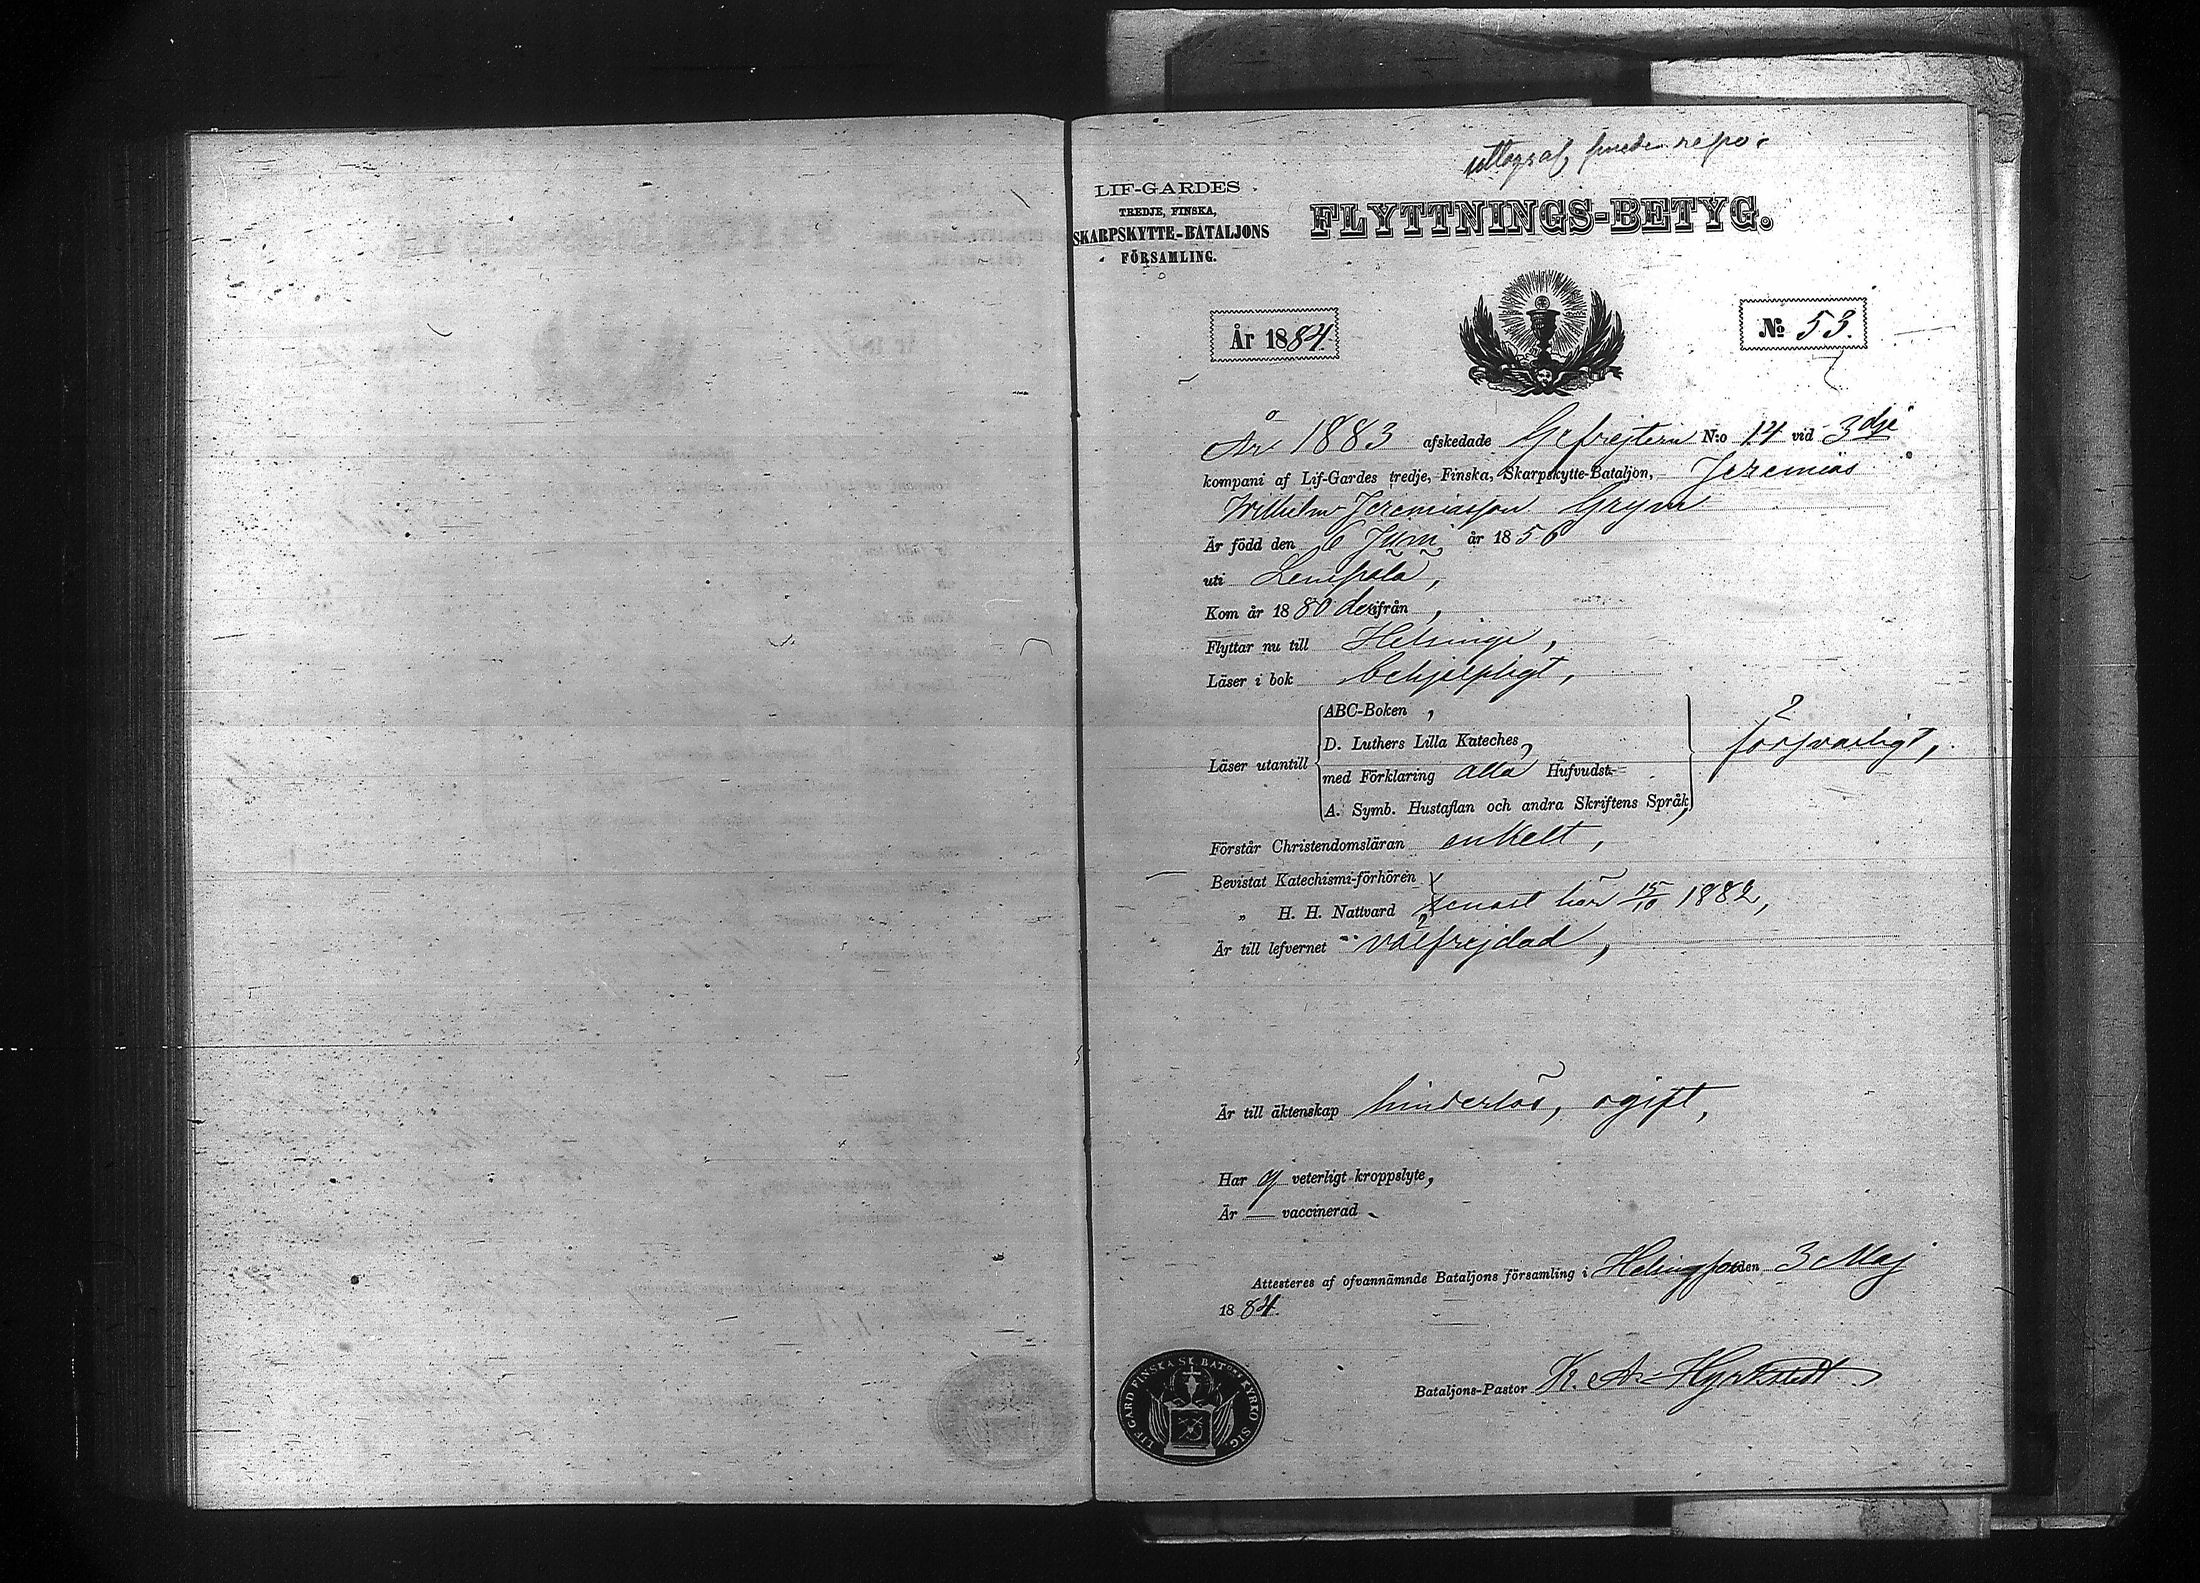 LIF-GARDES
TREDJE, FINSKA,
SKARPSKYTTE-BATALJONS
FÖRSAMLING.
FLYTTNINGS-BETYG.
År 1884.
No 53.
År 1883 afskedade Gefrejtern N:o 14 vid 3dje
kompani af Lif-Gardes tredje, Finska, Skarpskytte-Bataljon, Jeremias
Wilhelm Jeremiasson Grym
Är född den 6 Juni år 1856
uti Lempälä,
Kom år 1880 derifrån,
Flyttar nu till Helsinge,
Läser i bok behjelpligt,
Läser utantill
ABC-Boken,
D. Luthers Lilla Kateches,
med Förklaring alla Hufvudst.
A. Symb. Hustaflan och andra Skriftens Språk,
försvarligt,
Förstår Christendomsläran enkelt,
Bevistat Katechismi-förhören
„ H. H. Nattvard senast här 15/10 1882,
Är till lefvernet välfrejdad,
Är till äktenskap hinderlös, ogift,
Har ej veterligt kroppslyte,
Är — vaccinerad.
Attesteres af ofvannämnde Bataljons församling i Helsingfors den 3 Maj
1884.
Bataljons-Pastor K. A. Hyrkstedt
LIF GARD FINSKA SK BATns KYRKO SIG.